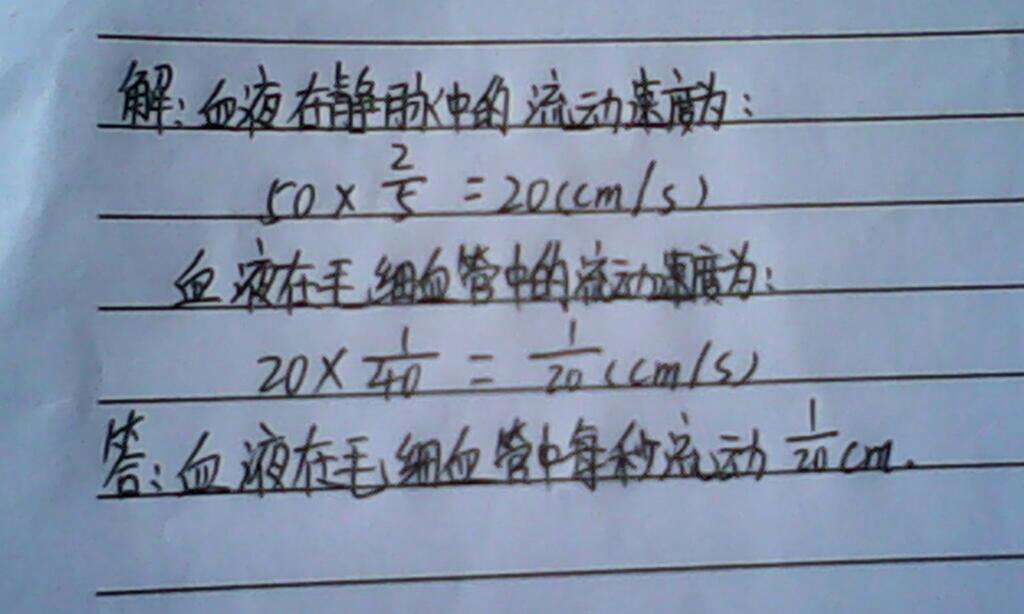 解：血液在静脉中的流动速度为：
50 × 2/5 = 20(cm/s)
血液在毛细血管中的流动速度为：
20 × 1/40 = 1/20 (cm/s)
答：血液在毛细血管中每秒流动 1/20 cm.